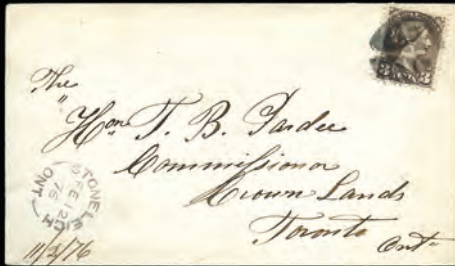 The
Hon T. B. Pardee
Commissioner
Crown Lands
Toronto
Ont
STONELEIGH
FE 12
76
ONT
11/2/76
3 3